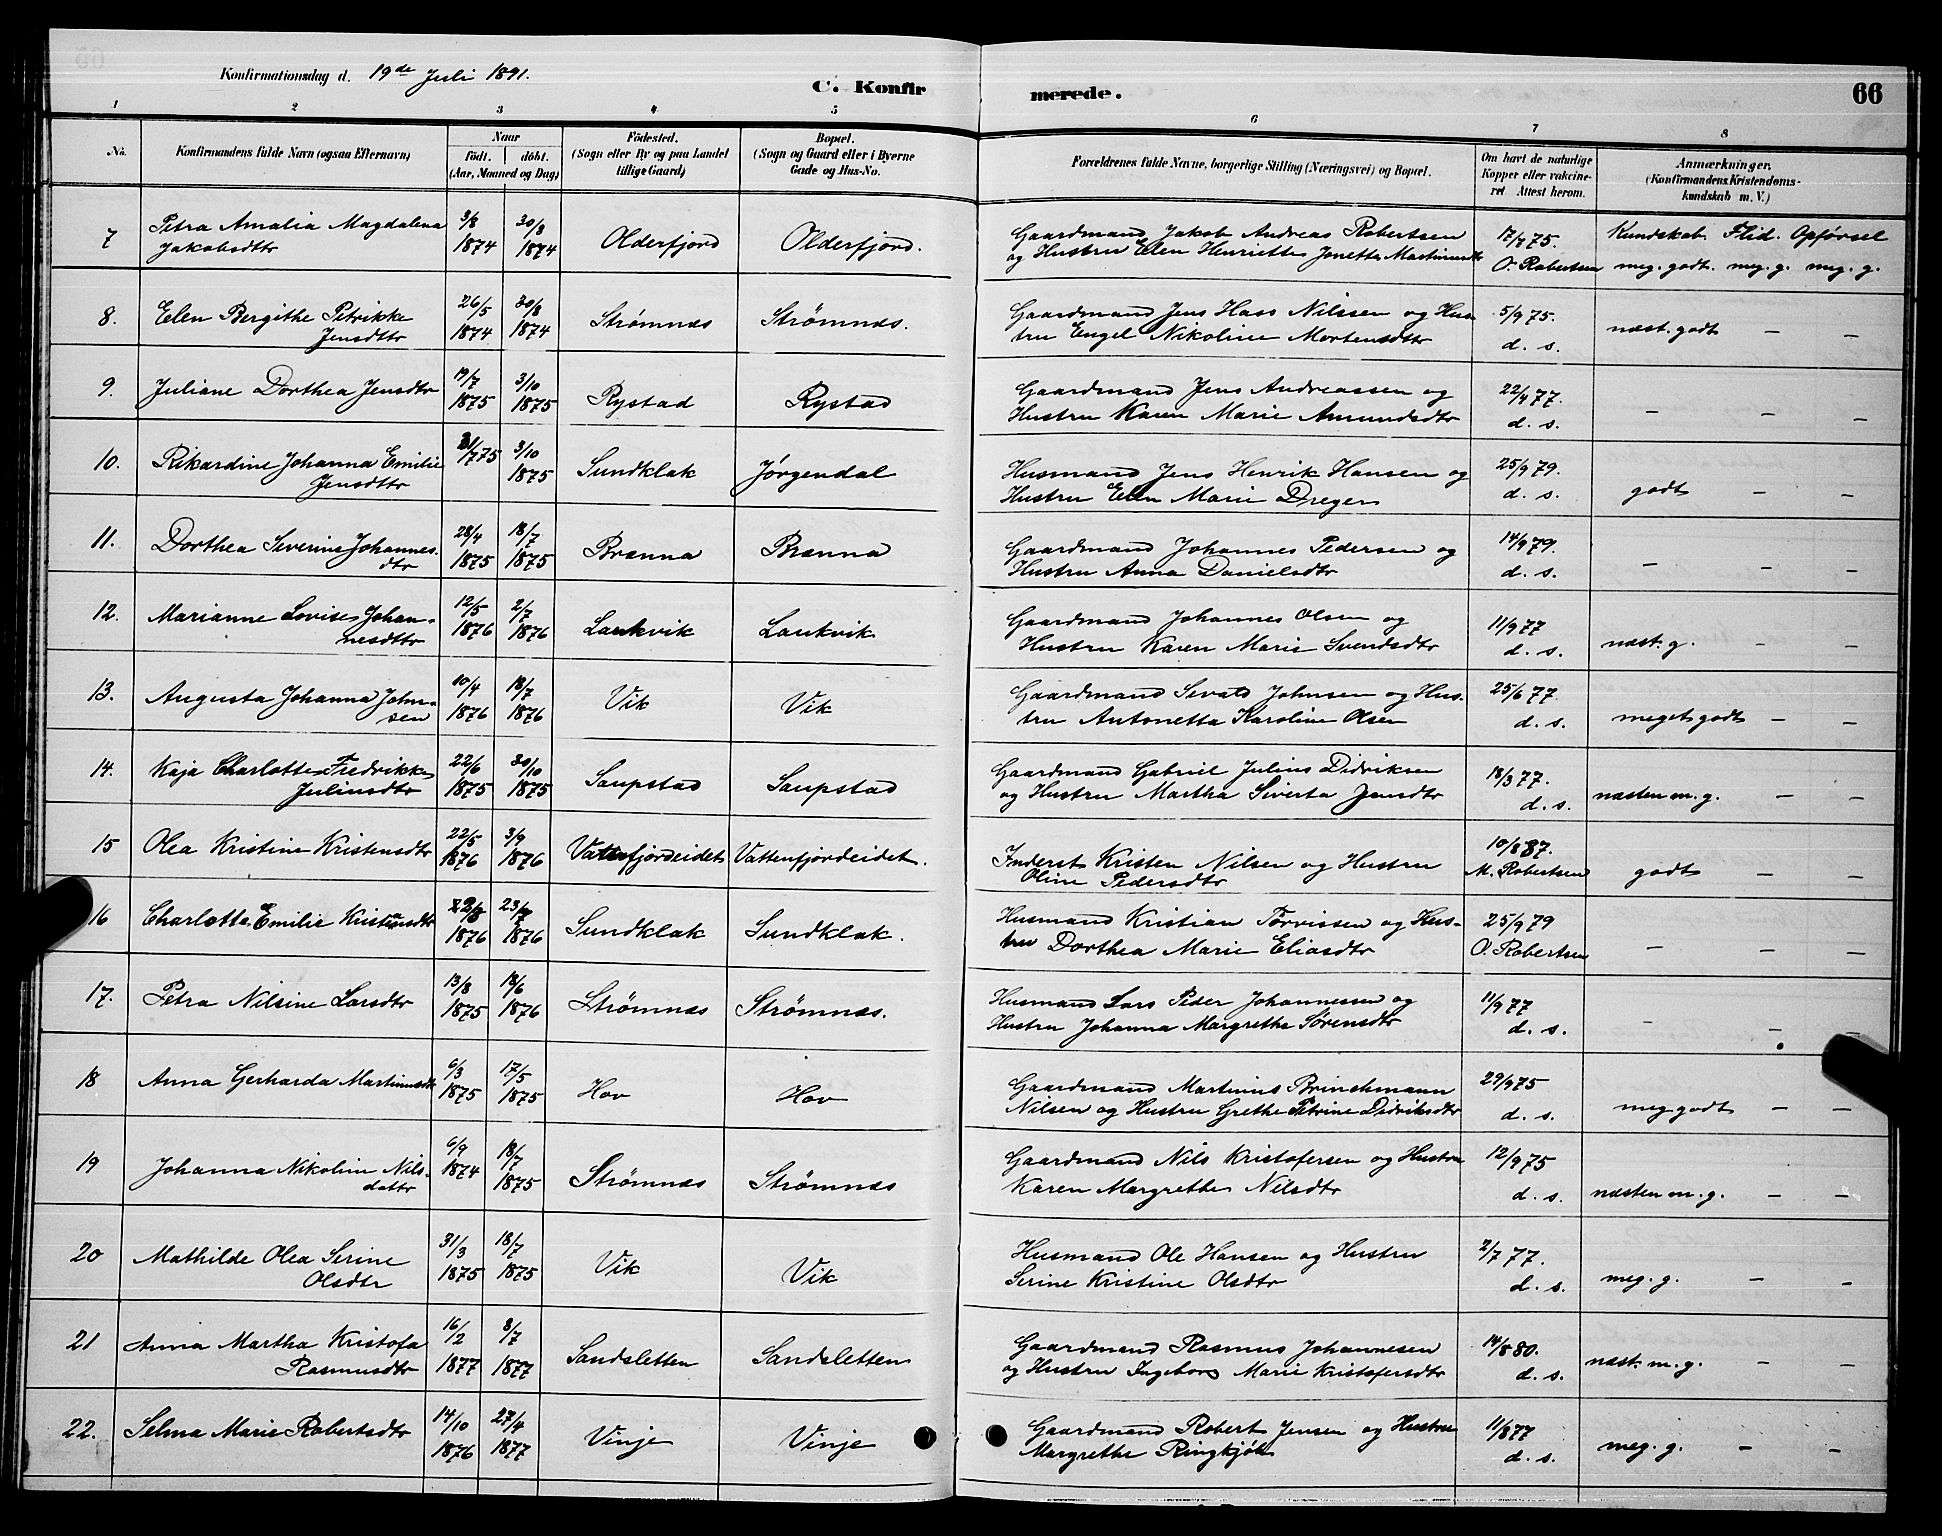 Konfirmationsdag d. 19de Juli 1891.
C. Konfirmerede.
66
1 2 3 4 5 6 7 8
No.
Konfirmandens fulde Navn (ogsaa Efternavn)
Naar
födt. döbt.
(Aar, Maaned og Dag)
Födested.
(Sogn eller By og paa Landet
tillige Gaard)
Bopæl.
(Sogn og Gaard eller i Byerne
Gade og Hus-No.
Forældrenes fulde Navne, borgerlige Stilling (Næringsvei) og Bopæl.
Om havt de naturlige
Kopper eller vakcine-
ret. Attest herom.
Anmærkninger,
(Konfirmandens Kristendoms-
kundskab m. V.)
7 Petra Amalia Magdalena 3/8 30/8 Olderfjord Olderfjord. Gaardmand Jakob Andreas Robertsen 17/7 75. Kundskab. Flid. Opførsel
Jakobsdtr 1874 1874 og Hustru Elen Henriette Jonette Martinusdtr O. Robertsen meg. godt. meg. g. meg. g.
8. Elen Bergithe Petrikke 26/5 30/8 Strømnæs Strömnæs. Gaardmand Jens Hass Nilssen og Hus 5/9 75. næst. godt — —
Jensdttr 1874 1874 tru Engel Nikoline Mortensdttr d. s.
9. Juliane Dorthea Jensdtr 19/7 3/10 Rystad Rystad Gaardmand Jens Andreassen og 22/4 77. — — —
1875 1875 Hustru Karen Marie Amundsdtr d. s.
10. Rikardine Johanna Emilie 31/7 75 3/10 Sundklak Jørgendal Husmand Jens Henrik Hansen og 25/9 79. godt — —
Jensdttr 1875 Hustru Elen Marie Dreyer d. s.
11. Dorthea Severine Johannes. 28/4 18/7 Brænna Brænna Gaardmand Johannes Pedersen og 14/9 79. — — —
dtr 1875 1875 Hustru Anna Danielsdtr d. s.
12. Marianne Lovise Johan- 12/5 2/7 Laukvik Laukvik Gaardmand Johannes Olsen og 11/9 77 næst. g. — —
nesdttr 1876 1876 Hustru Karen Marie Svendsdtr d. s.
13. Augusta Johanna John- 10/4 18/7 Vik Vik Gaardmand Sevald Johnsen og Hus- 25/6 77 meget godt — —
sen 1876 1876 tru Antonetta Karoline Olsen d. s.
14. Kaja Charlotte Fredrikke 22/6 30/10 Saupstad Saupstad Gaardmand Gabriel Julius Didriksen 18/3 77. næsten m. g. — —
Juliusdtr 1875 1875 og Hustru Martha Siverta Jensdtr d. s.
15 Olea Kristine Kristensdtr 22/5 3/9 Vattenfjordeidet Vattenfjordeidet. Inderst Kristen Nilsen og Hustru 10/8 87. godt — —
1876 1876 Oline Pedersdtr M. Robertsen
16 Charlotte Emilie Kristiansdtr 23/7 Sundklak Sundklak. Husmand Kristian Torvissen og Hus- 25/9 79 — — —
1876 1876 tru Dorthea Marie Eliasdtr O. Robertsen
17. Petra Nilsine Larsdtr 13/8 18/6 Strömnæs Strömnæs. Husmand Lars Peder Johannessen og 11/9 77 — — —
1875 1876 Hustru Johanna Margrethe Sørensdtr d. s.
18 Anna Gerharda Martinusdtr 6/3 17/5 Hov Hov Gaardmand Martinus Brinchmann 29/9 75 meg godt — —
1875 1875 Nilsen og Hustru Grethe Petrine Didriksdtr d. s.
19 Johanna Nikoline Nils- 6/9 18/7 Strömnæs Strömnæs Gaardmand Nils Kristofersen og Hustru 12/9 75 næsten m. g. — —
datter 1874 1875 Karen Margrethe Nilsdtr d. s.
20 Mathilde Olea Serine 31/3 18/7 Vik Vik Husmand Ole Hansen og Hustru 2/7 77. meg. g. — —
Olsdtr 1875 1875 Serine Kristine Olsdtr d. s.
21 Anna Martha Kristofa 16/2 8/7 Sandsletten Sandsletten Gaardmand Rasmus Johannesen 14/8 80. næst. m. g. — —
Rasmusdtr 1877 1877 og Hustru Ingeborg Marie Kristofersdtr d. s.
22. Selma Marie Robertsdtr 14/10 27/4 Vinje Vinje Gaardmand Robert Jensen og Hustru 11/8 77 meg. g. — —
1876 1877 Margrethe Ringkjöb d. s.